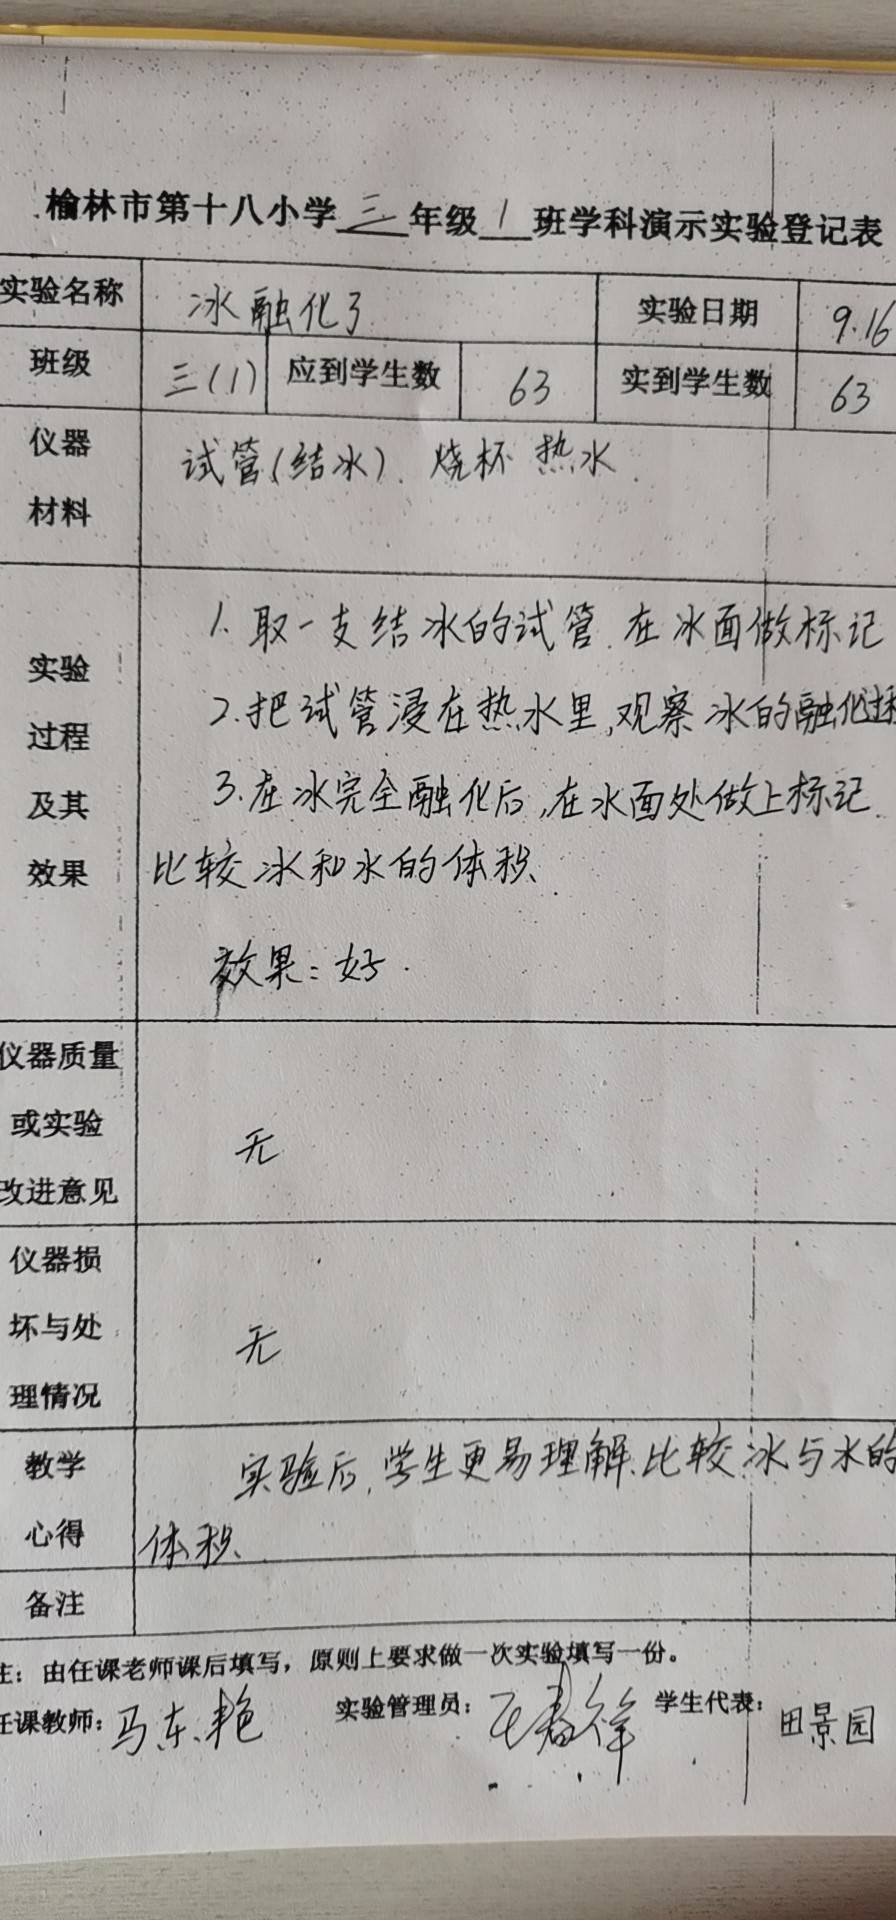 榆林市第十八小学三年级1班学科演示实验登记表
实验名称 冰融化了 实验日期 9.16
班级 三(1) 应到学生数 63 实到学生数 63
仪器
材料
试管(结冰). 烧杯 热水.
实验
过程
及其
效果
1. 取一支结冰的试管.在冰面做标记
2.把试管浸在热水里,观察冰的融化过程
3.在冰完全融化后,在水面处做上标记.
比较冰和水的体积、
效果:好.
仪器质量
或实验
改进意见
无
仪器损
坏与处
理情况
无
教学
心得
实验后,学生更易理解、比较冰与水的
体积、
备注
注:由任课老师课后填写,原则上要求做一次实验填写一份。
任课教师:马东艳 实验管理员: 学生代表:田景园